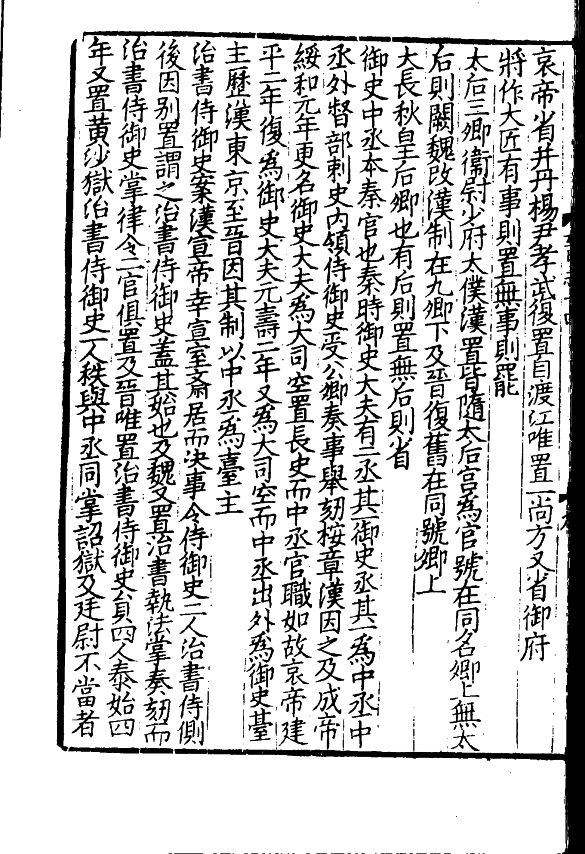 哀帝省并丹楊尹孝武復置自渡江唯置一尚方又省御府
將作大匠有事則置無事則罷
太后三卿衞尉少府太僕漢置皆隨太后宫爲官號在同名卿上無太
后則闕魏改漢制在九卿下及晉復舊在同號卿上
大長秋皇后卿也有后則置無后則省
御史中丞本秦官也秦時御史大夫有二丞其一御史丞其一爲中丞中
丞外督部刺史内領侍御史受公卿奏事舉劾按章漢因之及成帝
綏和元年更名御史大夫爲大司空置長史而中丞官職如故哀帝建
平二年復爲御史大夫元壽二年又爲大司空而中丞出外爲御史臺
主歷漢東京至晉因其制以中丞爲臺主
治書侍御史案漢宣帝幸宣室齋居而決事令侍御史二人治書侍側
後因别置謂之治書侍御史蓋其始也及魏又置治書執法掌奏劾而
治書侍御史掌律令二官俱置及晉唯置治書侍御史員四人泰始四
年又置黄沙獄治書侍御史一人秩與中丞同掌詔獄及廷尉不當者